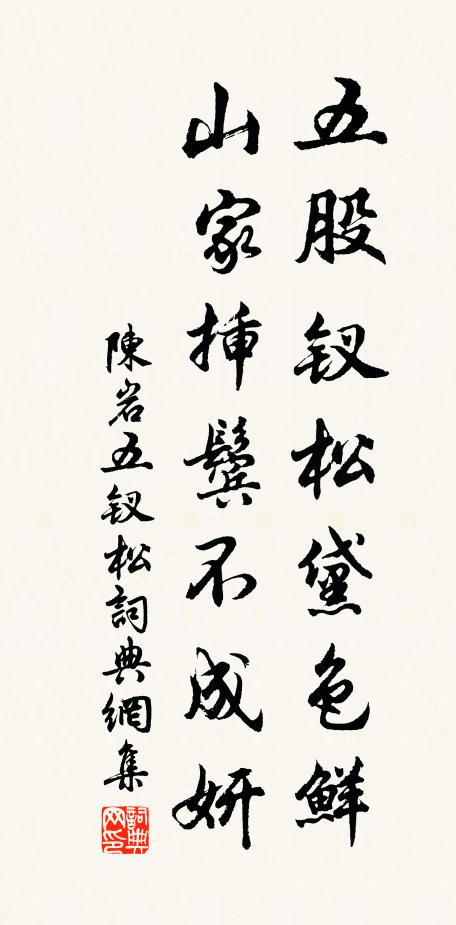 五股钗松黛色鮮
山家挿鬓不成妍
陳岩五钗松詞典網集
詞典网印